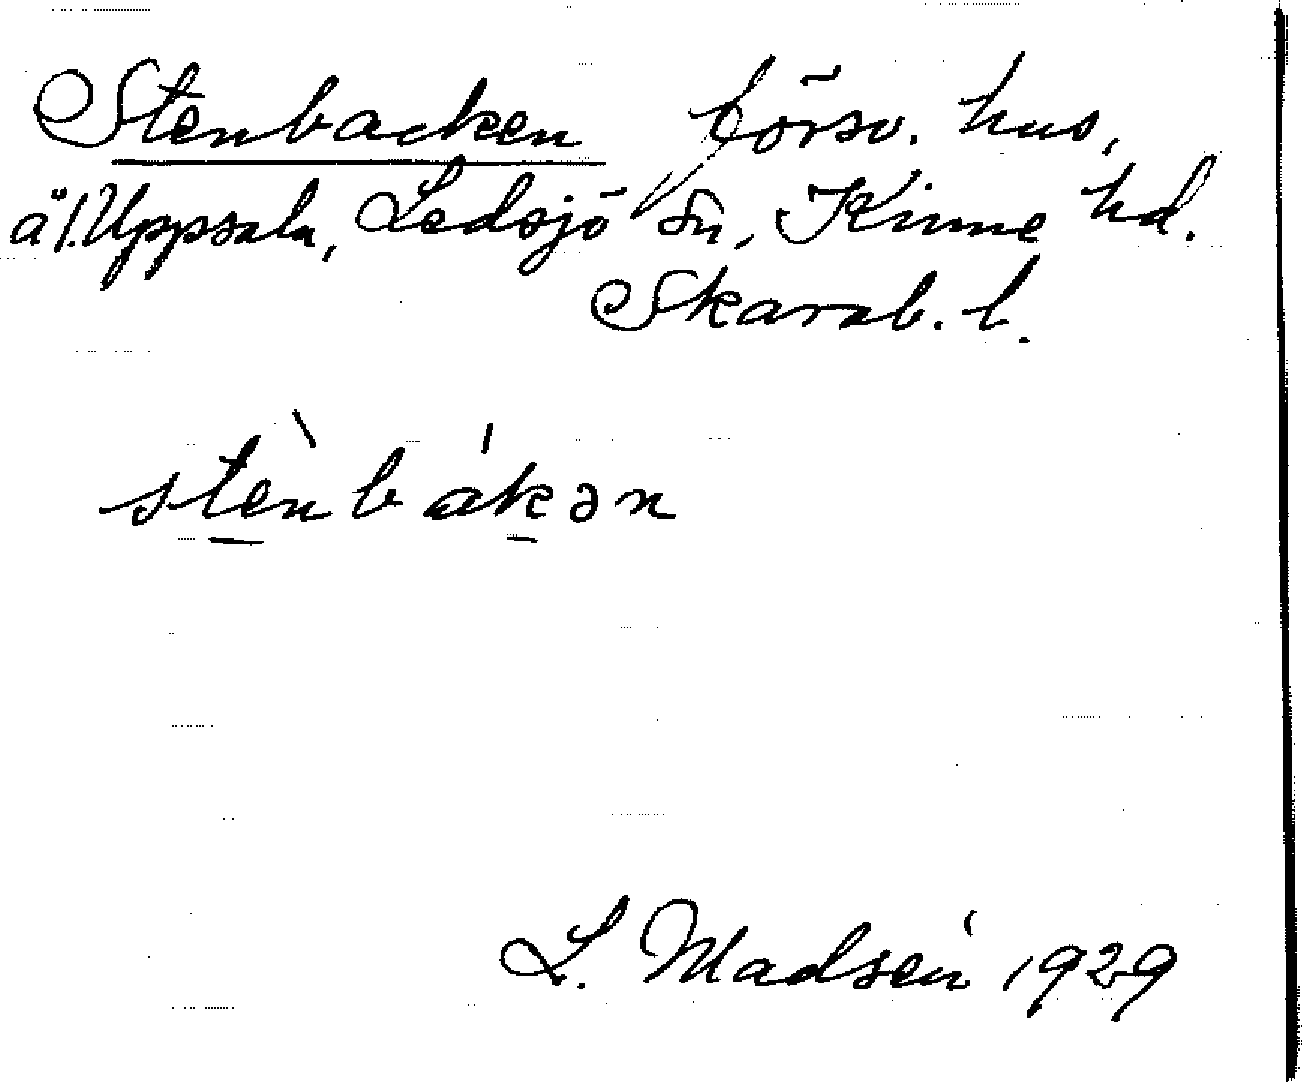 Stenbacken försv. hus,
ä/. Uppsala, Ledsjö sn, Kinne hd.
Skarab. l.
stènbákən
L. Madsén 1929